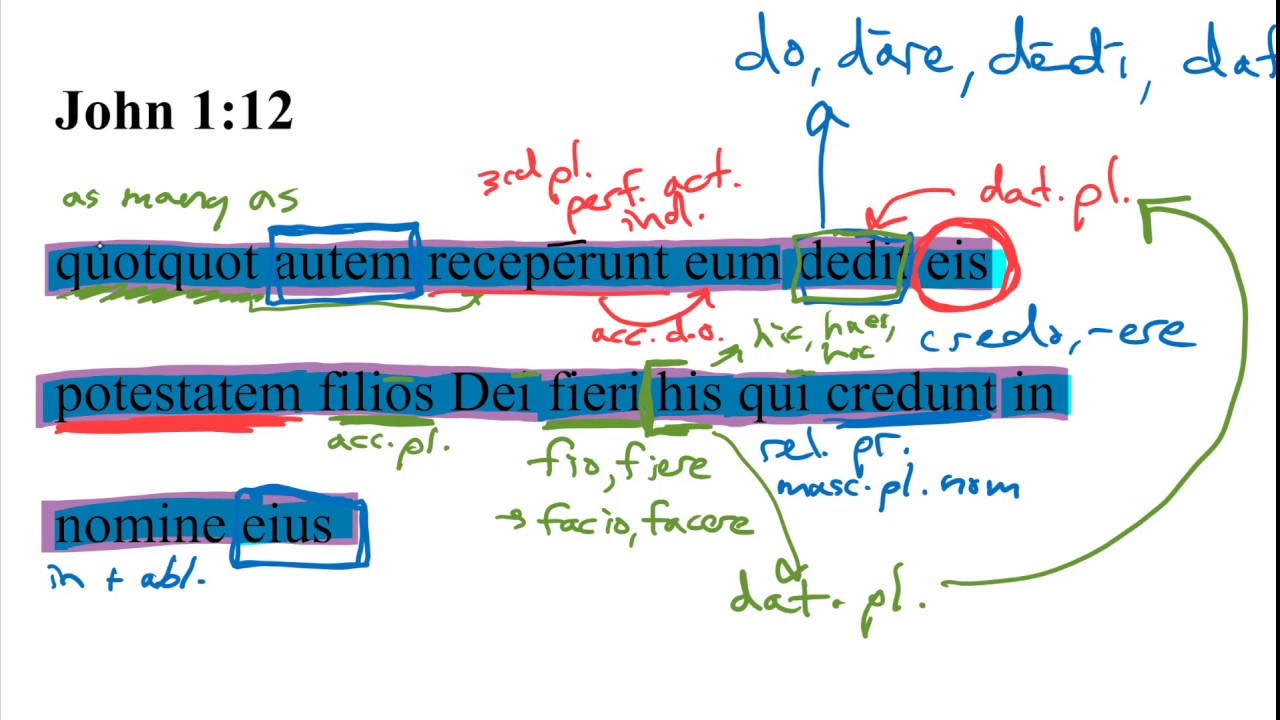 do, dāre, dēdī, dat
John 1:12
as many as
3rd pl.
perf. act.
ind.
dat. pl.
quotquot autem recepērunt eum dedit eis
acc. d.o.
hic, haec,
hoc
credo, -ere
potestatem filiōs Deī fieri his quī credunt in
acc. pl.
fio, fiere
→ facio, facere
rel. pr.
masc. pl. nom
nomine eius
in + abl.
dat. pl.